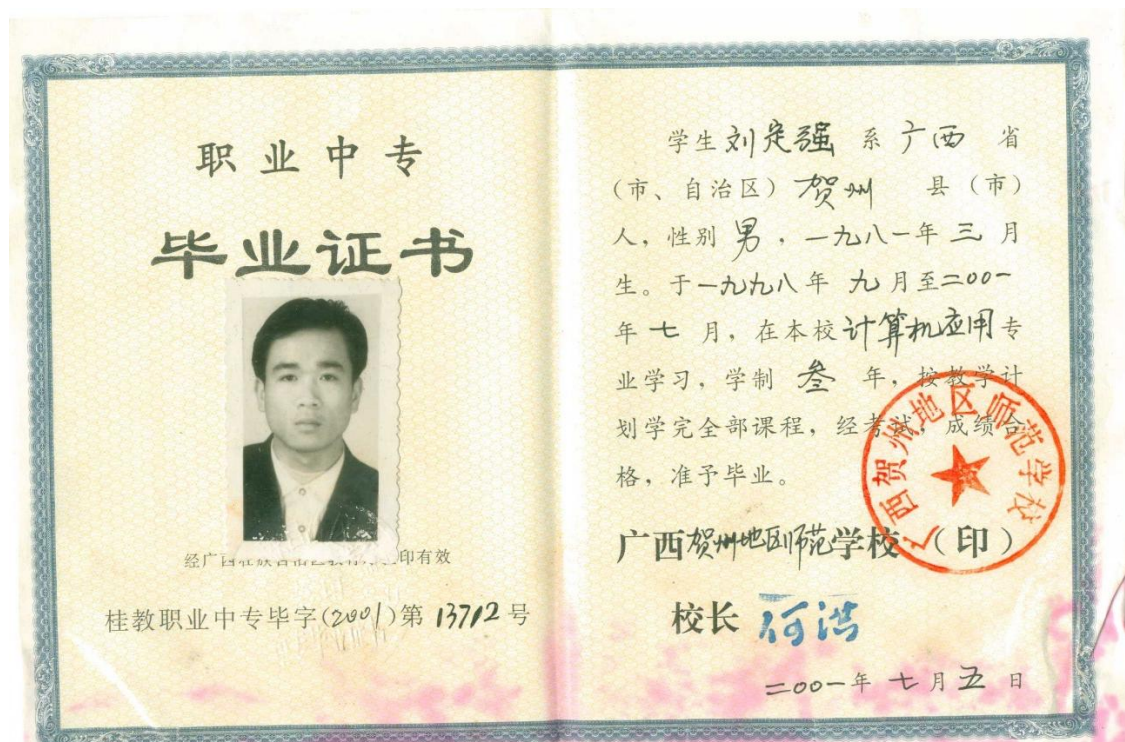 职业中专
毕业证书
经广西壮族自治区教育厅验印有效
桂教职业中专毕字(2001)第13712号
学生刘定强系广西省
(市、自治区)贺州县(市)
人,性别男,一九八一年三月
生。于一九九八年九月至二00一
年七月,在本校计算机应用专
业学习,学制叁年,按教学计
划学完全部课程,经考试,成绩合
格,准予毕业。
广西贺州地区师范学校(印)
校长 何浩
二00一年七月五日
广西贺州地区师范学校